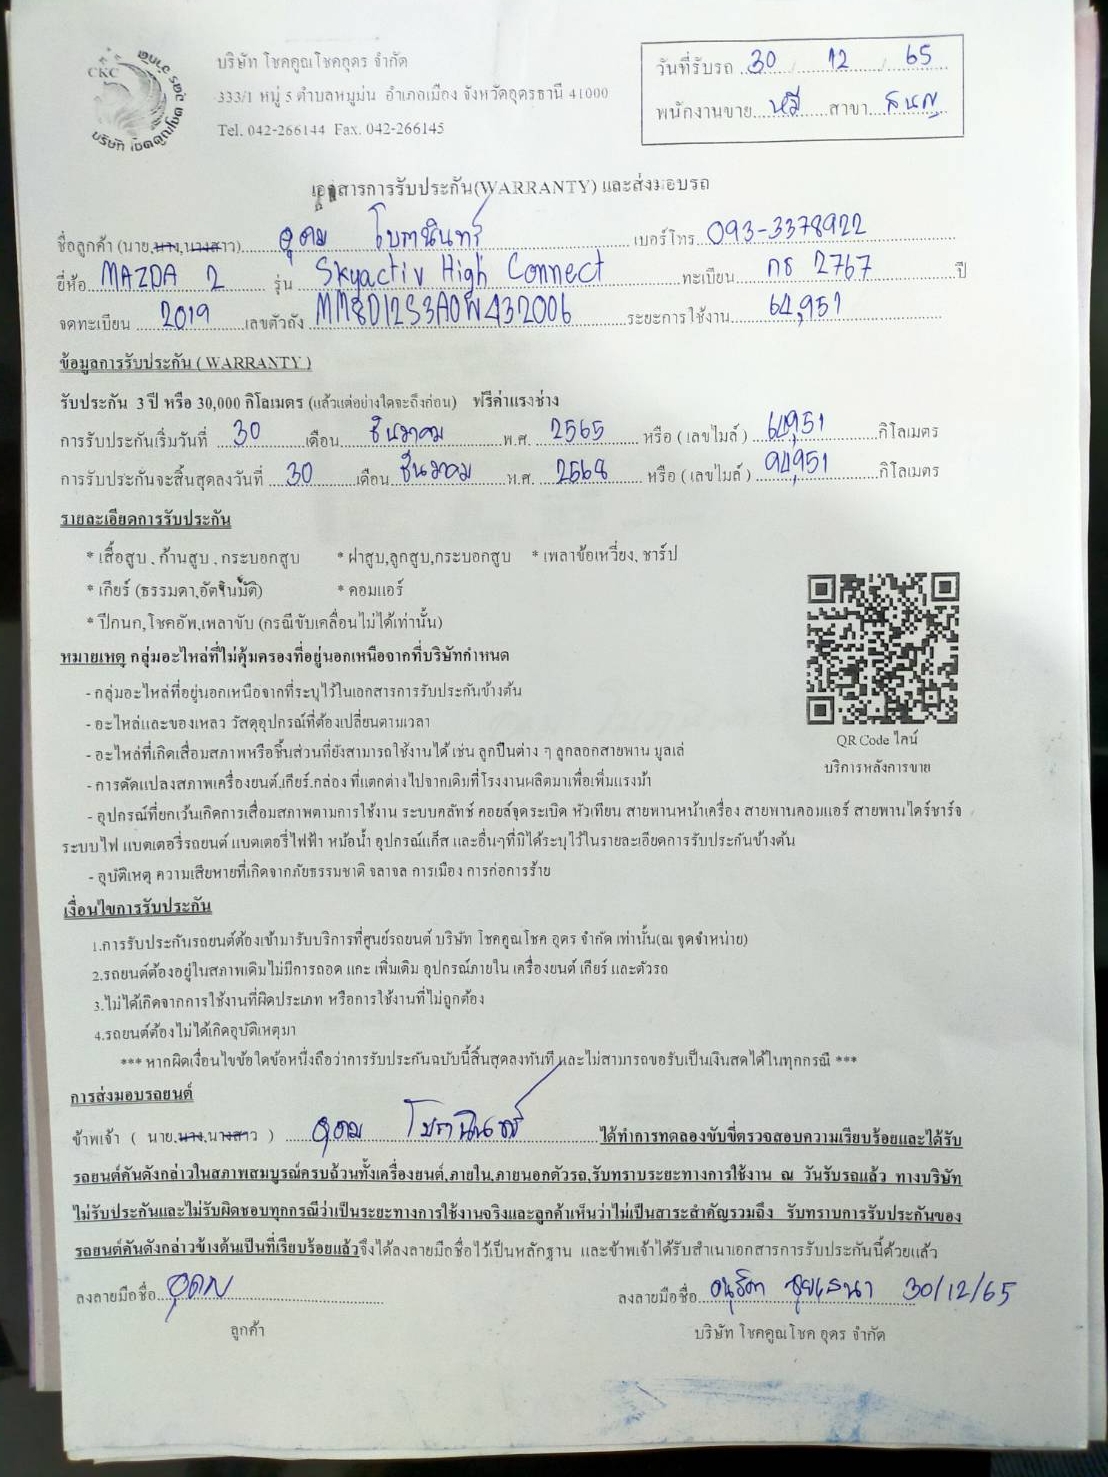 CKC
บริษัท โชคคูณโชคอุดร จำกัด
333/1 หมู่ 5 ตำบลหมูม่น อำเภอเมือง จังหวัดอุดรธานี 41000
Tel. 042-266144 Fax. 042-266145
วันที่รับรถ 30 / 12 / 65
พนักงานขาย หมี สาขา
เอกสารการรับประกัน(WARRANTY) และส่งมอบรถ
ชื่อลูกค้า (นาย,นาง,นางสาว) อุดม เบอร์โทร 093-3378922
ยี่ห้อ MAZDA 2 รุ่น Skyactiv High Connect ทะเบียน กธ 2767 ปี
จดทะเบียน 2019 เลขตัวถัง MM8D12S3A0W432006 ระยะการใช้งาน 64,951
ข้อมูลการรับประกัน ( WARRANTY )
รับประกัน 3 ปี หรือ 30,000 กิโลเมตร (แล้วแต่อย่างใดจะถึงก่อน) ฟรีค่าแรงช่าง
การรับประกันเริ่มวันที่ 30 เดือน ธันวาคม พ.ศ. 2565 หรือ ( เลขไมล์ ) 64,951 กิโลเมตร
การรับประกันจะสิ้นสุดลงวันที่ 30 เดือน ธันวาคม พ.ศ. 2568 หรือ ( เลขไมล์ ) 94,951 กิโลเมตร
รายละเอียดการรับประกัน
* เสื้อสูบ , ก้านสูบ , กระบอกสูบ * ฝาสูบ,ลูกสูบ,กระบอกสูบ * เพลาข้อเหวี่ยง, ชาร์ป
* เกียร์ (ธรรมดา,อัตโนมัติ) * คอมแอร์
* ปีกนก,โชคอัพ,เพลาขับ (กรณีขับเคลื่อนไม่ได้เท่านั้น)
หมายเหตุ กลุ่มอะไหล่ที่ไม่คุ้มครองที่อยู่นอกเหนือจากที่บริษัทกำหนด
- กลุ่มอะไหล่ที่อยู่นอกเหนือจากที่ระบุไว้ในเอกสารการรับประกันข้างต้น
- อะไหล่และของเหลว วัสดุอุปกรณ์ที่ต้องเปลี่ยนตามเวลา
- อะไหล่ที่เกิดเสื่อมสภาพหรือชิ้นส่วนที่ยังสามารถใช้งานได้ เช่น ลูกปืนต่าง ๆ ลูกลอกสายพาน มูลเล่
- การดัดแปลงสภาพเครื่องยนต์,เกียร์,กล่อง ที่แตกต่างไปจากเดิมที่โรงงานผลิตมาเพื่อเพิ่มแรงม้า
- อุปกรณ์ที่ยกเว้นเกิดการเสื่อมสภาพตามการใช้งาน ระบบคลัทช์ คอยล์จุดระเบิด หัวเทียน สายพานหน้าเครื่อง สายพานคอมแอร์ สายพานไดร์ชาร์จ
ระบบไฟ แบตเตอรี่รถยนต์ แบตเตอรี่ไฟฟ้า หม้อน้ำ อุปกรณ์แก๊ส และอื่นๆที่มิได้ระบุไว้ในรายละเอียดการรับประกันข้างต้น
- อุบัติเหตุ ความเสียหายที่เกิดจากภัยธรรมชาติ จลาจล การเมือง การก่อการร้าย
QR Code ไลน์
บริการหลังการขาย
เงื่อนไขการรับประกัน
1.การรับประกันรถยนต์ต้องเข้ามารับบริการที่ศูนย์รถยนต์ บริษัท โชคคูณโชค อุดร จำกัด เท่านั้น(ณ จุดจำหน่าย)
2.รถยนต์ต้องอยู่ในสภาพเดิมไม่มีการถอด แกะ เพิ่มเติม อุปกรณ์ภายใน เครื่องยนต์ เกียร์ และตัวรถ
3.ไม่ได้เกิดจากการใช้งานที่ผิดประเภท หรือการใช้งานที่ไม่ถูกต้อง
4.รถยนต์ต้องไม่ได้เกิดอุบัติเหตุมา
*** หากผิดเงื่อนไขข้อใดข้อหนึ่งถือว่าการรับประกันฉบับนี้สิ้นสุดลงทันที และไม่สามารถขอรับเป็นเงินสดได้ในทุกกรณี ***
การส่งมอบรถยนต์
ข้าพเจ้า ( นาย,นาง,นางสาว ) อุดม ได้ทำการทดลองขับขี่ตรวจสอบความเรียบร้อยและได้รับ
รถยนต์คันดังกล่าวในสภาพสมบูรณ์ครบถ้วนทั้งเครื่องยนต์,ภายใน,ภายนอกตัวรถ,รับทราบระยะทางการใช้งาน ณ วันรับรถแล้ว ทางบริษัท
ไม่รับประกันและไม่รับผิดชอบทุกกรณีว่าเป็นระยะทางการใช้งานจริงและลูกค้าเห็นว่าไม่เป็นสาระสำคัญรวมถึง รับทราบการรับประกันของ
รถยนต์คันดังกล่าวข้างต้นเป็นที่เรียบร้อยแล้วจึงได้ลงลายมือชื่อไว้เป็นหลักฐาน และข้าพเจ้าได้รับสำเนาเอกสารการรับประกันนี้ด้วยแล้ว
ลงลายมือชื่อ อุดม ลงลายมือชื่อ 30/12/65
ลูกค้า บริษัท โชคคูณโชค อุดร จำกัด